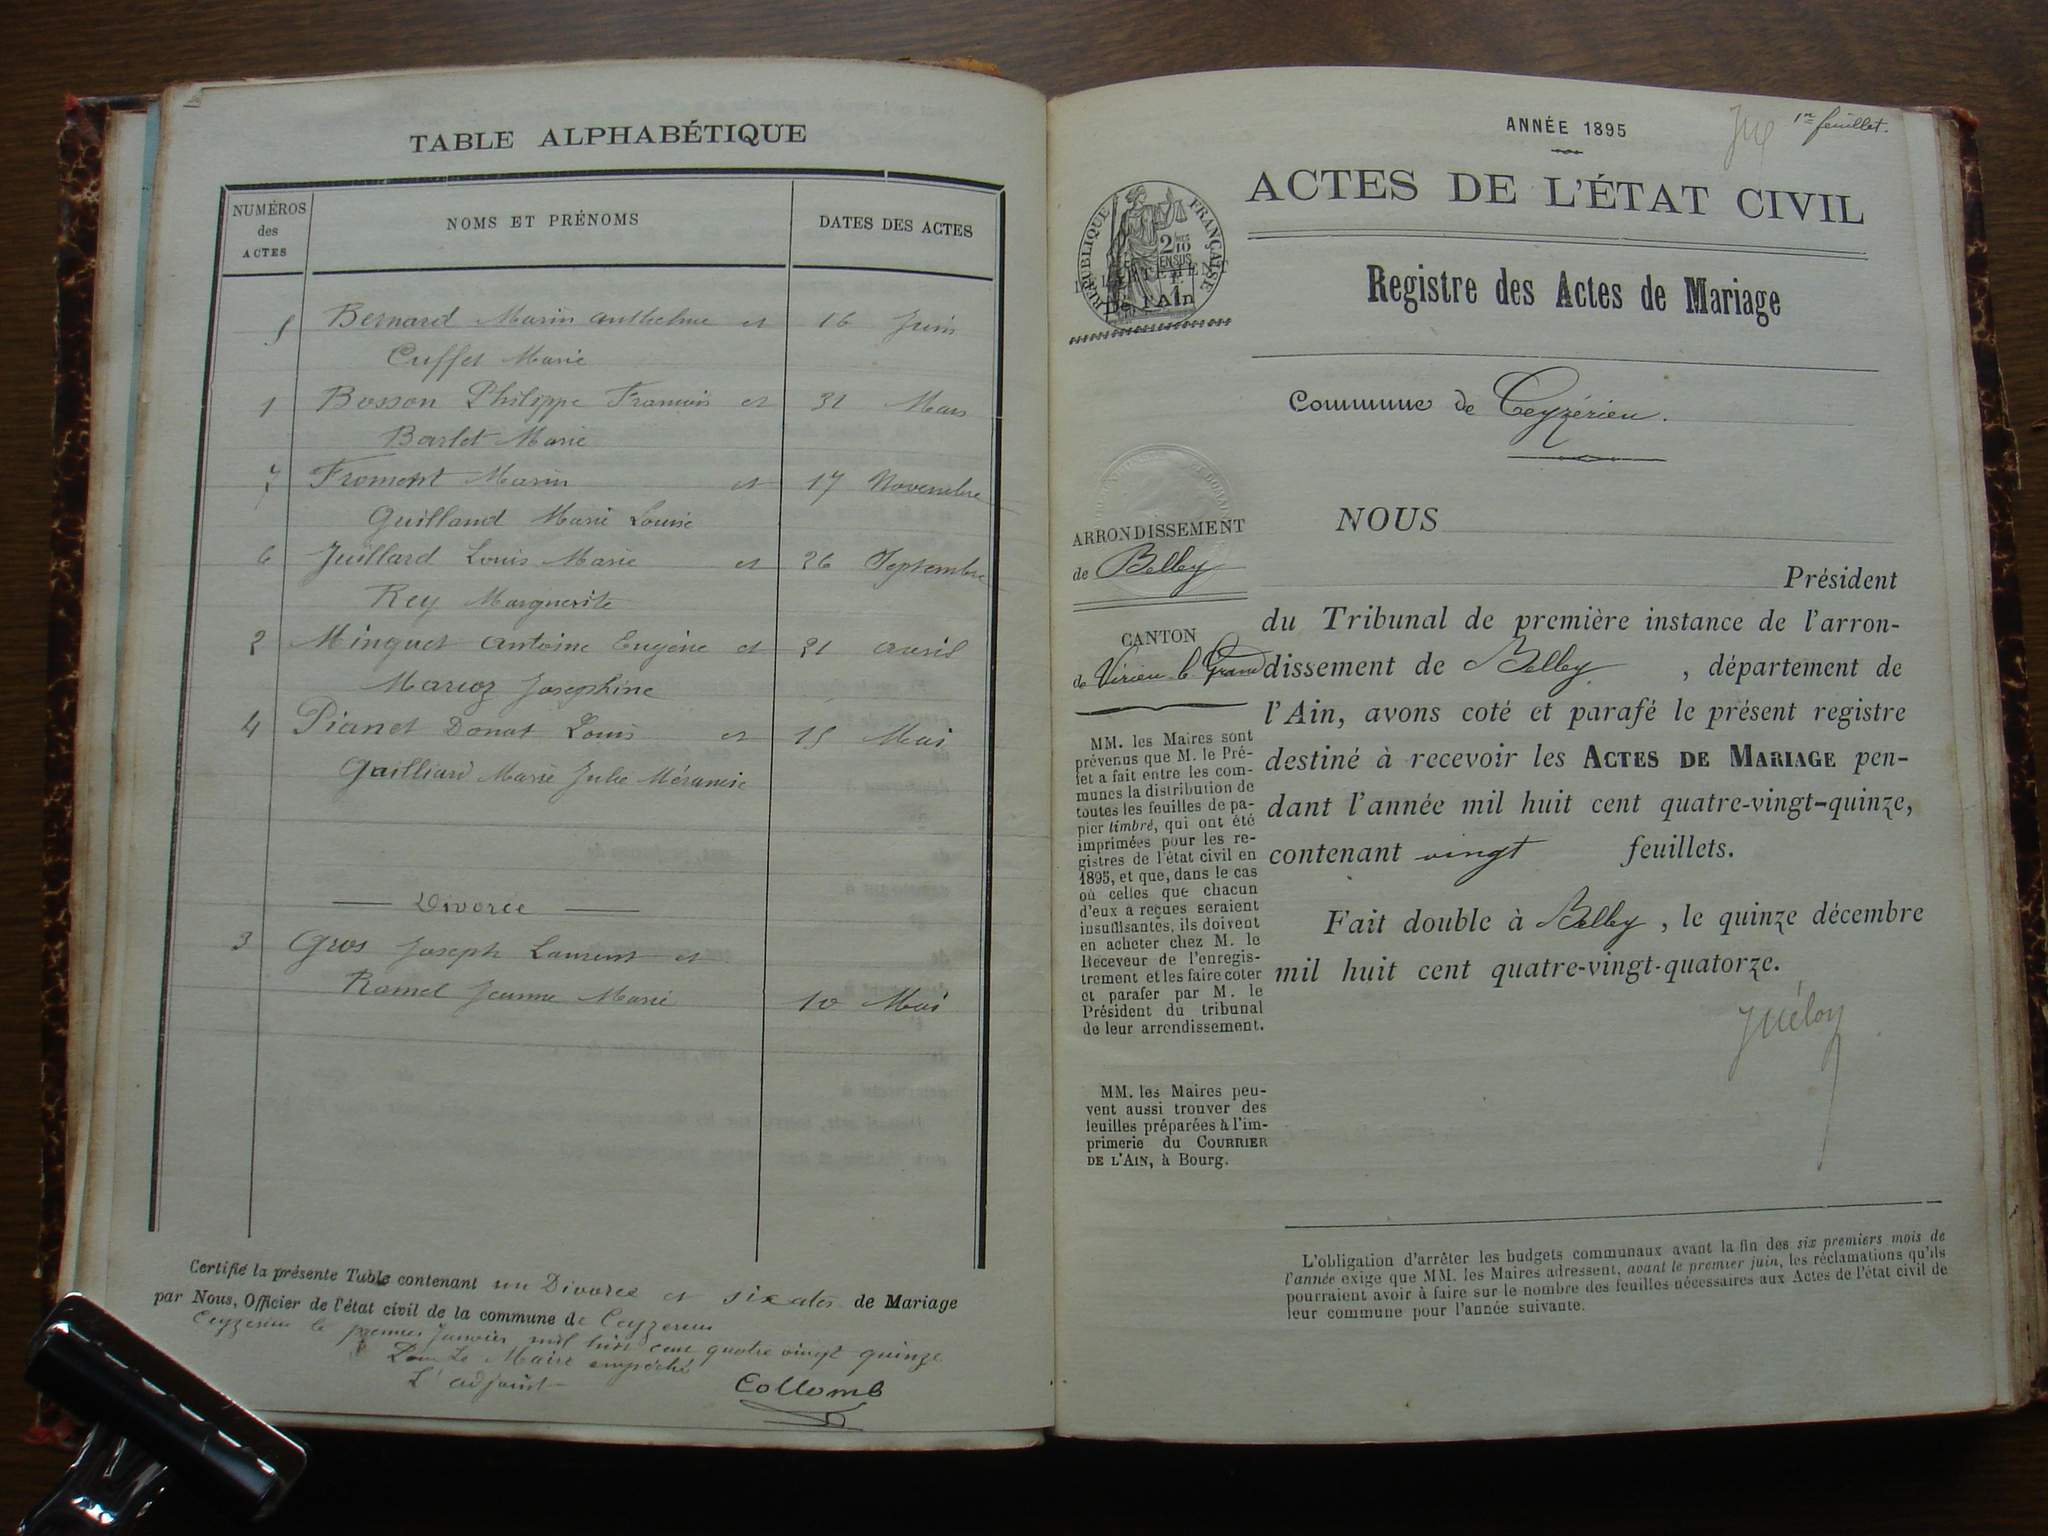 TABLE ALPHABÉTIQUE
NUMÉROS
des
ACTES
NOMS ET PRÉNOMS
DATES DES ACTES
5 Bernard Marin Anthelme et 16 Juin
Cuffet Marie
1 Bosson Philippe François et 31 Mars
Barlet Marie
7 Froment Marin et 17 Novembre
Guilland Marie Louise
6 Juillard Louis Marie et 26 Septembre
Rey Marguerite
2 Minguet Antoine Eugène et 21 Avril
Marioz Josephine
4 Pianet Donat Louis et 15 Mai
Gailliard Marie Julie
Divorce
3 Gros Joseph Laurent et
Ramel Jeanne Marie 10 Mai
Certifié la présente Table contenant un Divorce et six actes de Mariage
par Nous, Officier de l'état civil de la commune de Ceyzerieu
Ceyzerieu le premier Janvier mil huit cent quatre vingt quinze
Pour Le Maire empêché
L'adjoint
Collomb
1er feuillet.
ANNÉE 1895
ACTES DE L'ÉTAT CIVIL
RÉPUBLIQUE FRANÇAISE
2/10 EN SUS
De l'Ain
Registre des Actes de Mariage
Commune de Ceyzérieu.
ARRONDISSEMENT
de Belley
CANTON
de Virieu-le-Grand
MM. les Maires sont
prévenus que M. le Pré-
fet a fait entre les com-
munes la distribution de
toutes les feuilles de pa-
pier timbré, qui ont été
imprimées pour les re-
gistres de l'état civil en
1895, et que, dans le cas
où celles que chacun
d'eux a reçues seraient
insuffisantes, ils doivent
en acheter chez M. le
Receveur de l'enregis-
trement et les faire coter
et parafer par M. le
Président du tribunal
de leur arrondissement.
MM. les Maires peu-
vent aussi trouver des
feuilles préparées à l'im-
primerie du COURRIER
DE L'AIN, à Bourg.
NOUS
Président
du Tribunal de première instance de l'arron-
dissement de Belley, département de
l'Ain, avons coté et parafé le présent registre
destiné à recevoir les ACTES DE MARIAGE pen-
dant l'année mil huit cent quatre-vingt-quinze,
contenant vingt feuillets.
Fait double à Belley, le quinze décembre
mil huit cent quatre-vingt-quatorze.
L'obligation d'arrêter les budgets communaux avant la fin des six premiers mois de
l'année exige que MM. les Maires adressent, avant le premier juin, les réclamations qu'ils
pourraient avoir à faire sur le nombre des feuilles nécessaires aux Actes de l'état civil de
leur commune pour l'année suivante.